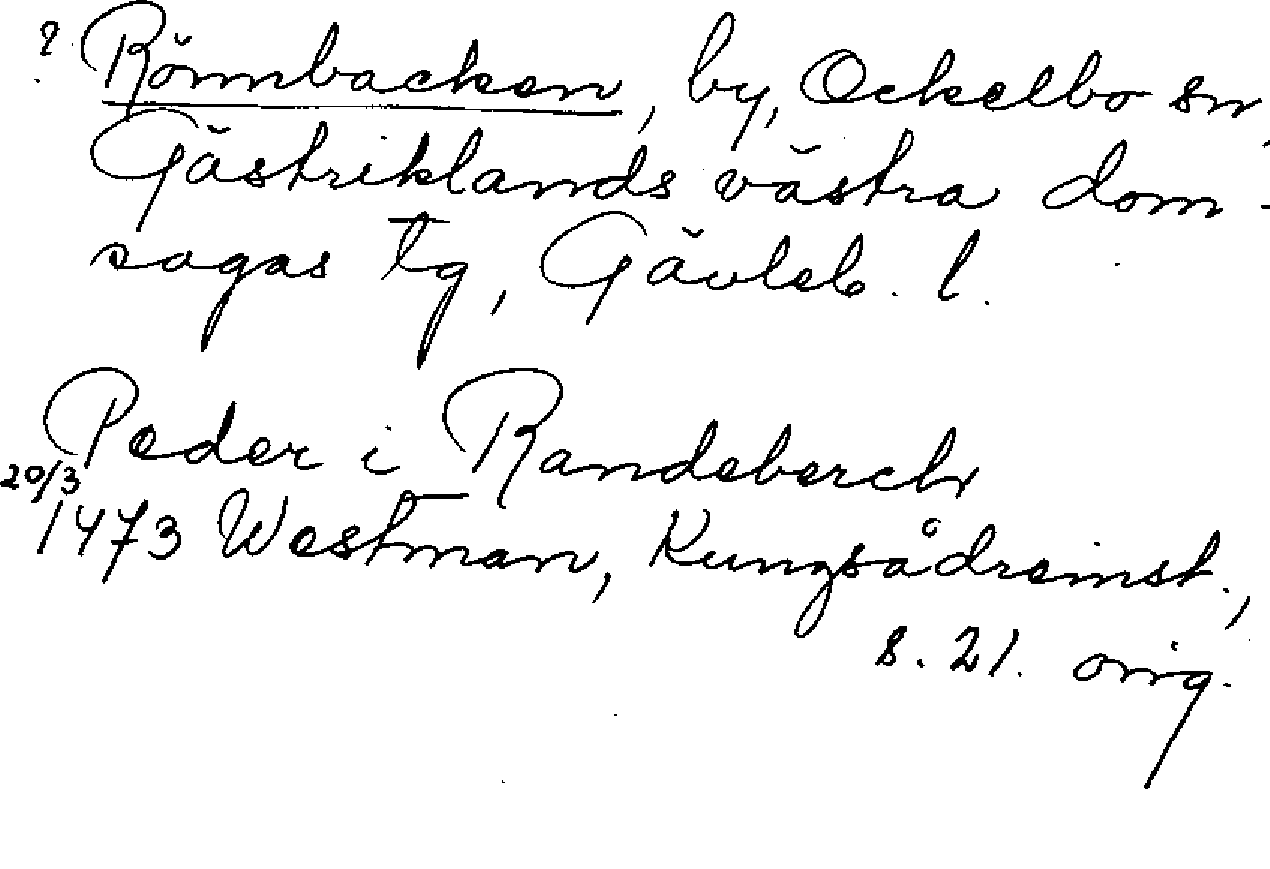 ? Rönnbacken, by, Ockelbo sn,
Gästriklands västra dom-
sagas tg, Gävleb. l.
Peder i Randeberch
20/3
1473 Westman, Kungsådreinst.,
s. 21. orig.